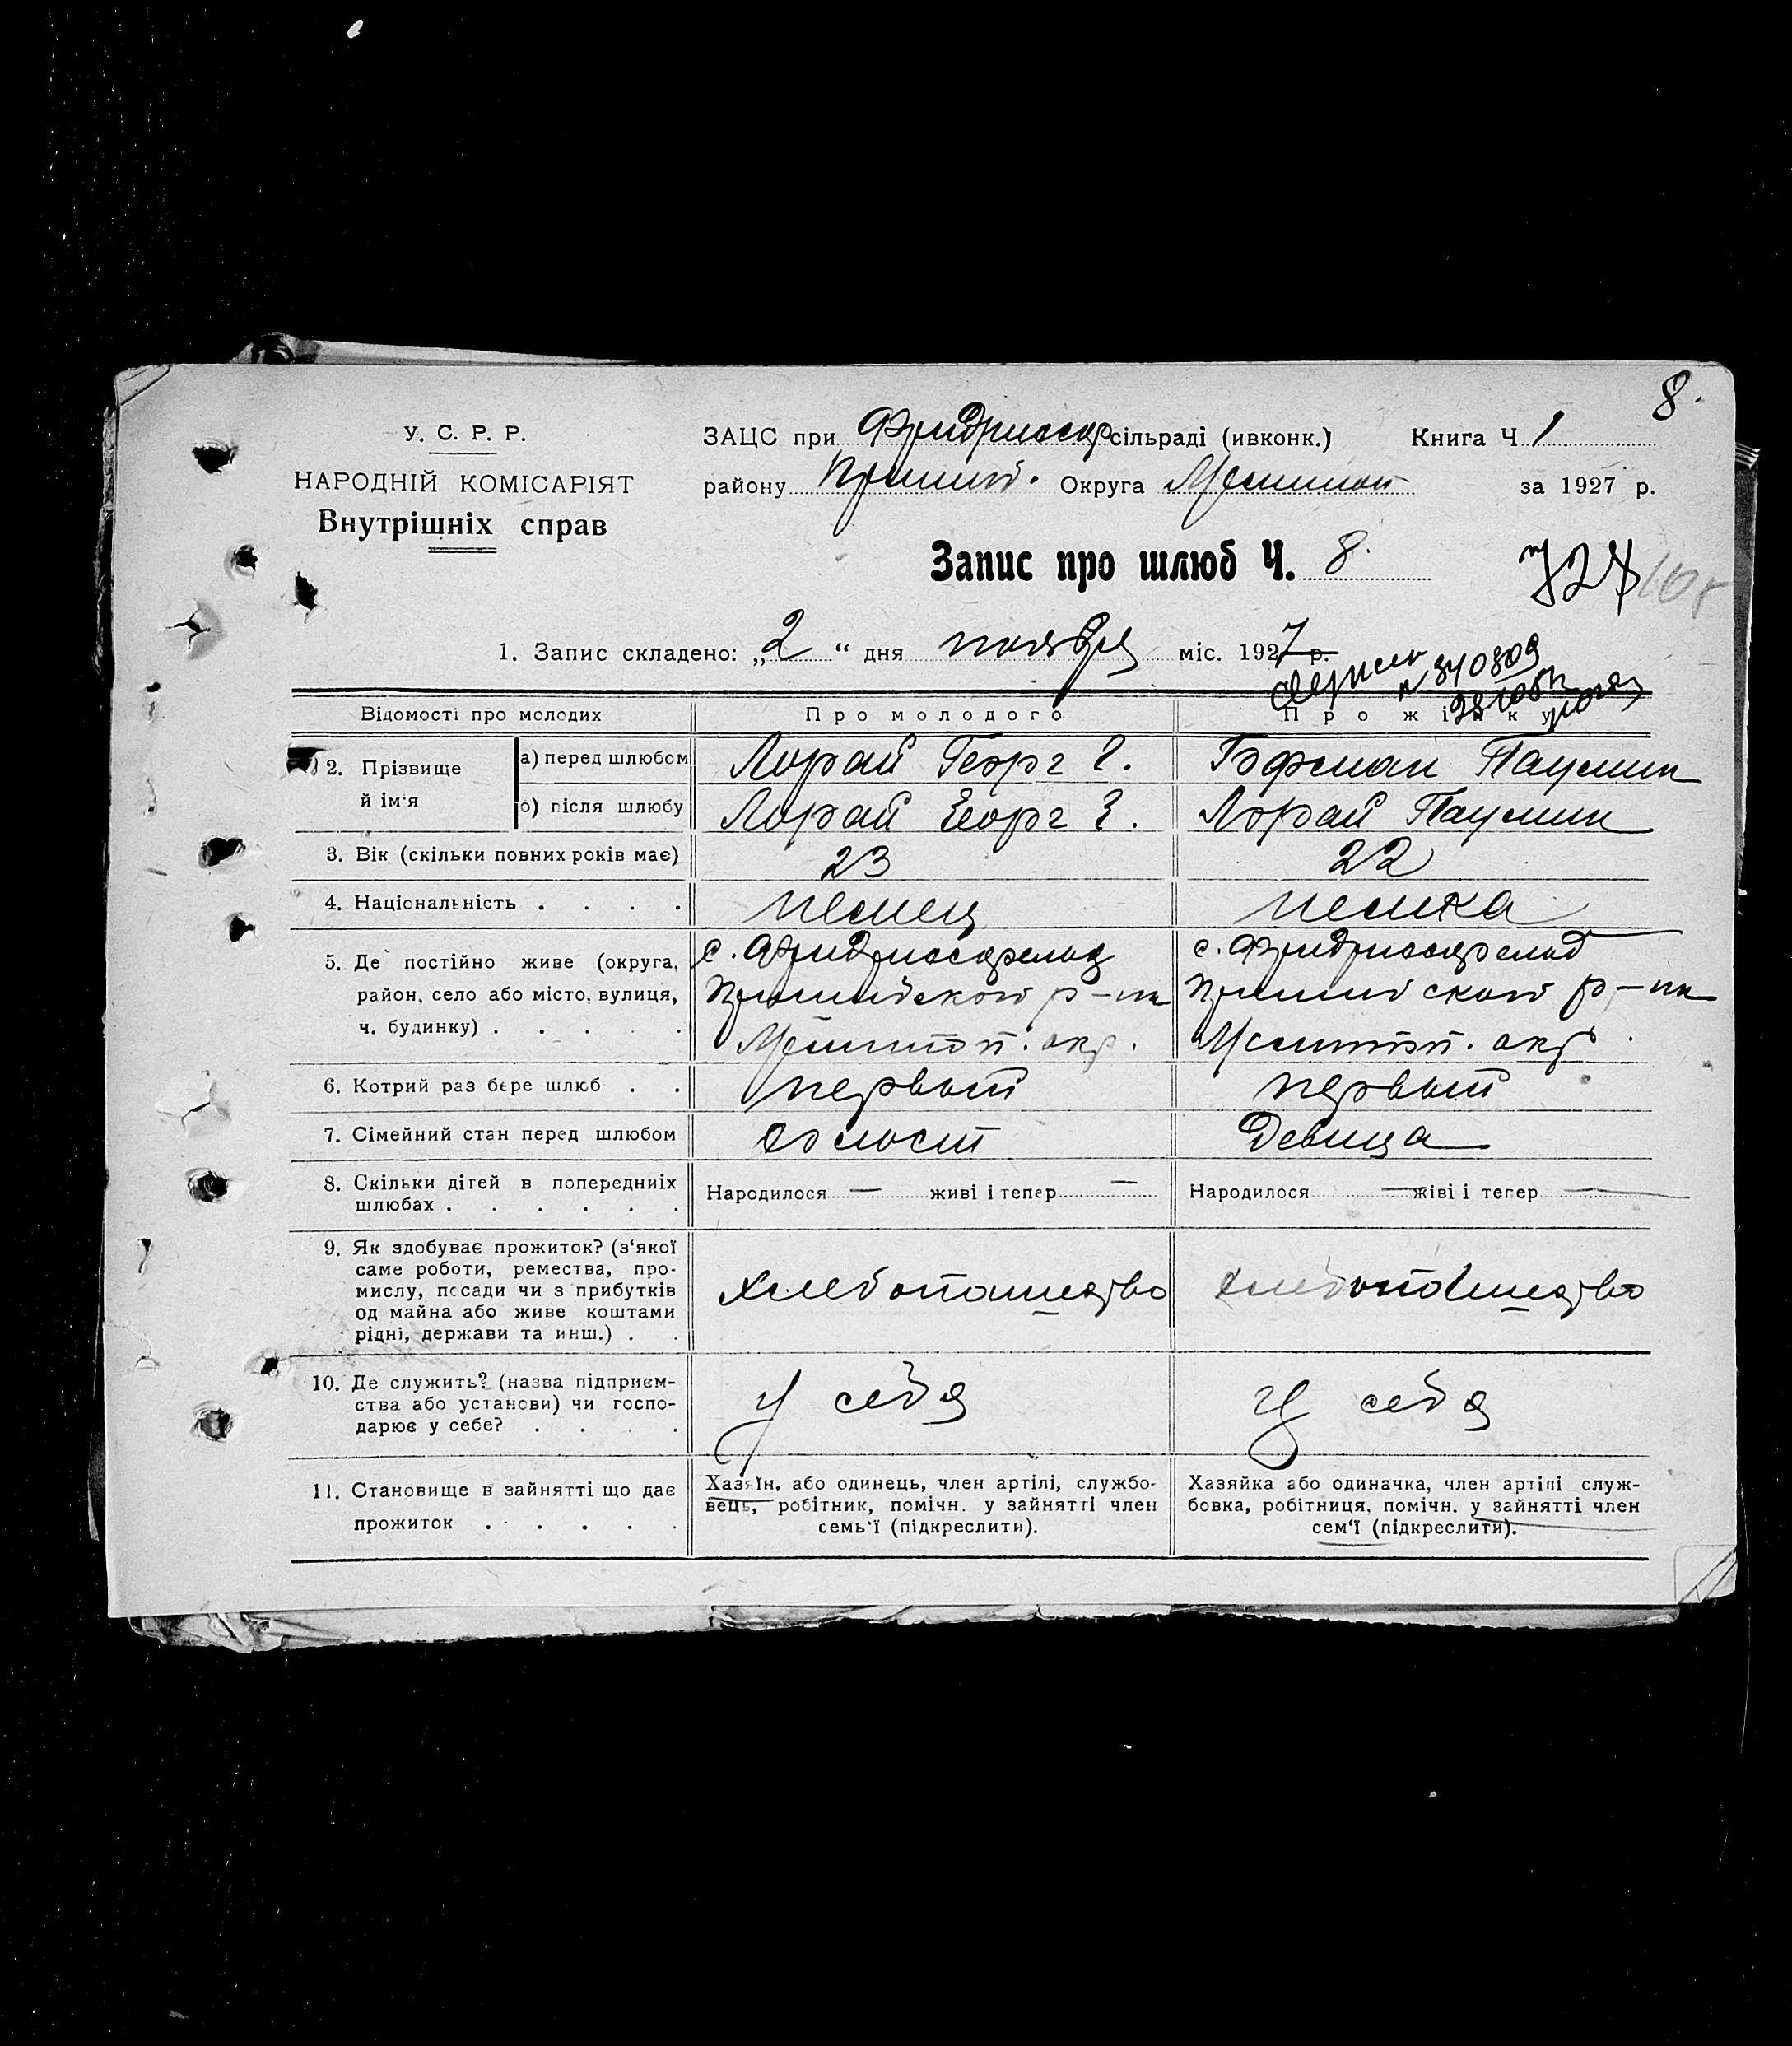 8.
У. С. Р. Р.
НАРОДНІЙ КОМІСАРІЯТ
Внутрішніх справ
ЗАЦС при Фридрихсф сільраді (ивконк.) Книга Ч 1
району Пришиб. Округа Мелитоп за 1927 р.
Запис про шлюб Ч. 8.
1. Запис складено: „2“ дня ноября міс. 1927 р.
№ 340809
Відомості про молодих Про молодого Про жінку
2. Прізвище й ім'я
а) перед шлюбом Лорай Георг Г. Гофман Паулин
б) після шлюбу Лорай Георг Г. Лорай Паулин
3. Вік (скільки повних років має) 23 22
4. Національність . . . . немец немка
5. Де постійно живе (округа, с. Фридрихсфельд с. Фридрихсфельд
район, село або місто, вулиця, Пришибского р-на Пришибского р-на
ч. будинку) . . . . . Мелитоп. окр. Мелитоп. окр.
6. Котрий раз бере шлюб . . первый первый
7. Сімейний стан перед шлюбом холост Девица
8. Скільки дітей в попередниіх Народилося — живі і тепер — Народилося — живі і тепер —
шлюбах . . . . . .
9. Як здобуває прожиток? (з'якої
саме роботи, ремества, про-
мислу, посади чи з прибутків хлебопашество хлебопашество
од майна або живе коштами
рідні, держави та инш.) . .
10. Де служить? (назва підприєм-
ства або установи) чи госпо- у себя у себя
дарює у себе? . . . .
11. Становище в зайнятті що дає Хазяїн, або одинець, член артілі, службо- Хазяйка або одиначка, член артілі служ-
прожиток . . . . . вець, робітник, помічн. у зайнятті член бовка, робітниця, помічн. у зайнятті член
семь'ї (підкреслити). сем'ї (підкреслити).